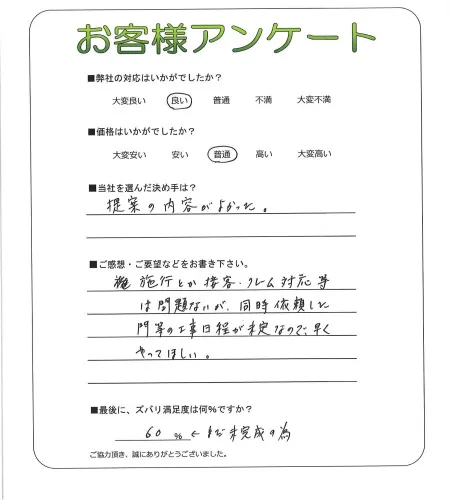 お客様アンケート
■弊社の対応はいかがでしたか？
大変良い 良い 普通 不満 大変不満
■価格はいかがでしたか？
大変安い 安い 普通 高い 大変高い
■当社を選んだ決め手は？
提案の内容がよかった。
■ご感想・ご要望などをお書き下さい。
施行とか接客・クレーム対応等
は問題ないが、同時依頼した
門等の工事日程が未定なので、早く
やってほしい。
■最後に、ズバリ満足度は何%ですか？
60 % ← まだ未完成の為
ご協力頂き、誠にありがとうございました。